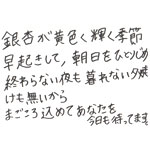 銀杏が黄色く輝く季節
早起きして、朝日をひとりじめ
終わらない夜も暮れない夕焼
けも無いから
まごころ込めてあなたを
今日も待ってます。